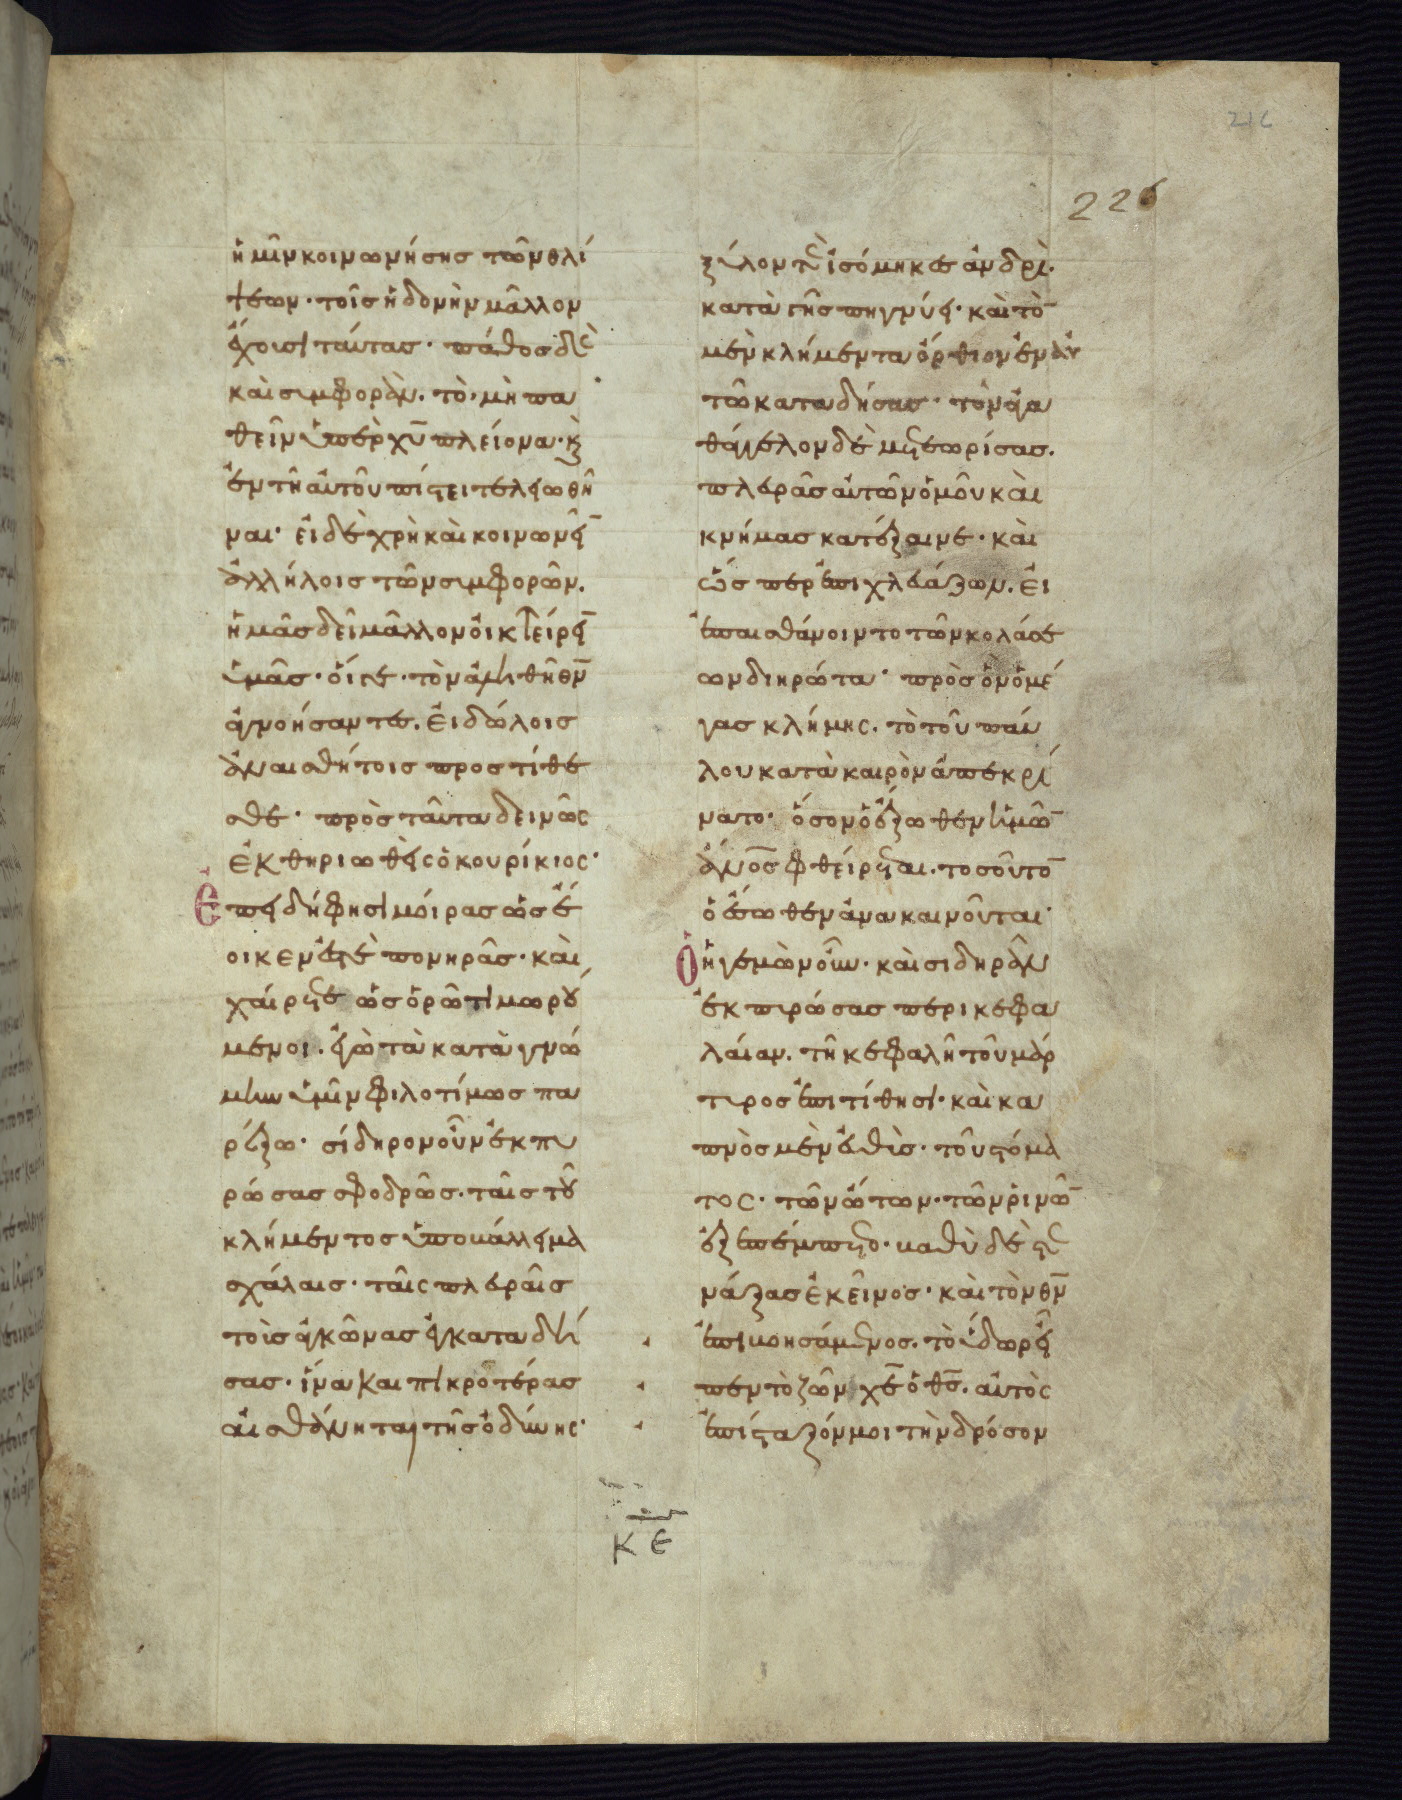 216
226
ἡμῖν κοινωνήσης τῶν θλί
ψεων· τοῖς ἡδονὴν μᾶλλον
ἔχουσι ταύτας· πάθος δὲ
καὶ συμφορὰν. τὸ, μὴ πα
θεῖν ὑπὲρ χ̅υ̅ πλείονα· κ̀
ἐν τῆ αὐτοῦ πίστει τελειωθῆ
ναι· εἰ δὲ χρὴ καὶ κοινωνεῖ̅
ἀλλήλοις τῶν συμφορῶν.
ἡμᾶς δεῖ μᾶλλον οἰκτείρει̅
ὑμᾶς· οἵτινες· τὸν ἀληθῆ θ̅ν̅
ἀγνοήσαντες. εἰδώλοις
ἀναισθήτοις προστίθε
σθε· πρὸς ταῦτα δεινῶς
ἐκθηριωθεὶς ὁ κουρίκιος·
Ἐπειδή φησι μοίρας ὡς ἔ
οικεν ἐστὲ πονηρᾶς· καὶ
χαίρετε ὡς ὁρῶ τιμωρού
μενοι. ἐγὼ τὰ κατὰ γνώ
μην ὑμῖν φιλοτίμως πα
ρέξω· σίδηρον οὖν ἐκπυ
ρώσας σφοδρῶς. ταῖς τοῦ
κλήμεντος ὑποβάλλει μα
σχάλαις· ταῖς πλευραῖς
τοὺς ἀγκῶνας ἐγκαταδή
σας· ἵνα καὶ πικροτέρας
αἰσθάνηται τῆς ὀδύνης·
ξύλον τὲ ἰσόμηκες ἀνδρὶ.
κατὰ γῆς πηγνύει· καὶ τὸ̅
μὲν κλήμεντα ὄρθιον ἐν αὐ
τῶ καταδήσας· τὸν ἀγα
θάγγελον δὲ μετεωρίσας.
πλευρᾶς αὐτῶν ὁμοῦ καὶ
κνήμας κατέξαινε· καὶ
ὥσπερ ἐπιχλευάζων. εἰ
ἐπαισθάνοιντο τῶν κολάσε
ων διηρώτα· πρὸς ὃν ὁ μέ
γας κλήμης. τὸ τοῦ παύ
λου κατὰ καιρὸν ἀπεκρί
νατο· ὅσον ὁ ἔξωθεν ἡμῶ̅
ἄ̅ν̅ο̅ς̅ φθείρεται. τοσοῦτο̅
ὁ ἔσωθεν ἀνακαινοῦται·
Ὁ ἡγεμὼν οὖν· καὶ σιδηρᾶν
ἐκπυρώσας περικεφα
λαίαν. τῆ κεφαλῆ τοῦ μάρ
τυρος ἐπιτίθησι· καὶ κα
πνὸς μὲν εὐθὺς· τοῦ στόμα
τος· τῶν ὤτων· τῶν ῥινῶ̅
ἐξεπέμπετο· βαθὺ δὲ στε
νάξας ἐκεῖνος· καὶ τὸν θ̅ν̅
ἐπιβοησάμενος. τὸ ὕδωρ εἶ
πεν τὸ ζῶν χ̅ε̅ ὁ θ̅ς̅. αὐτὸς
ἐπίσταξόν μοι τὴν δρόσον
κε